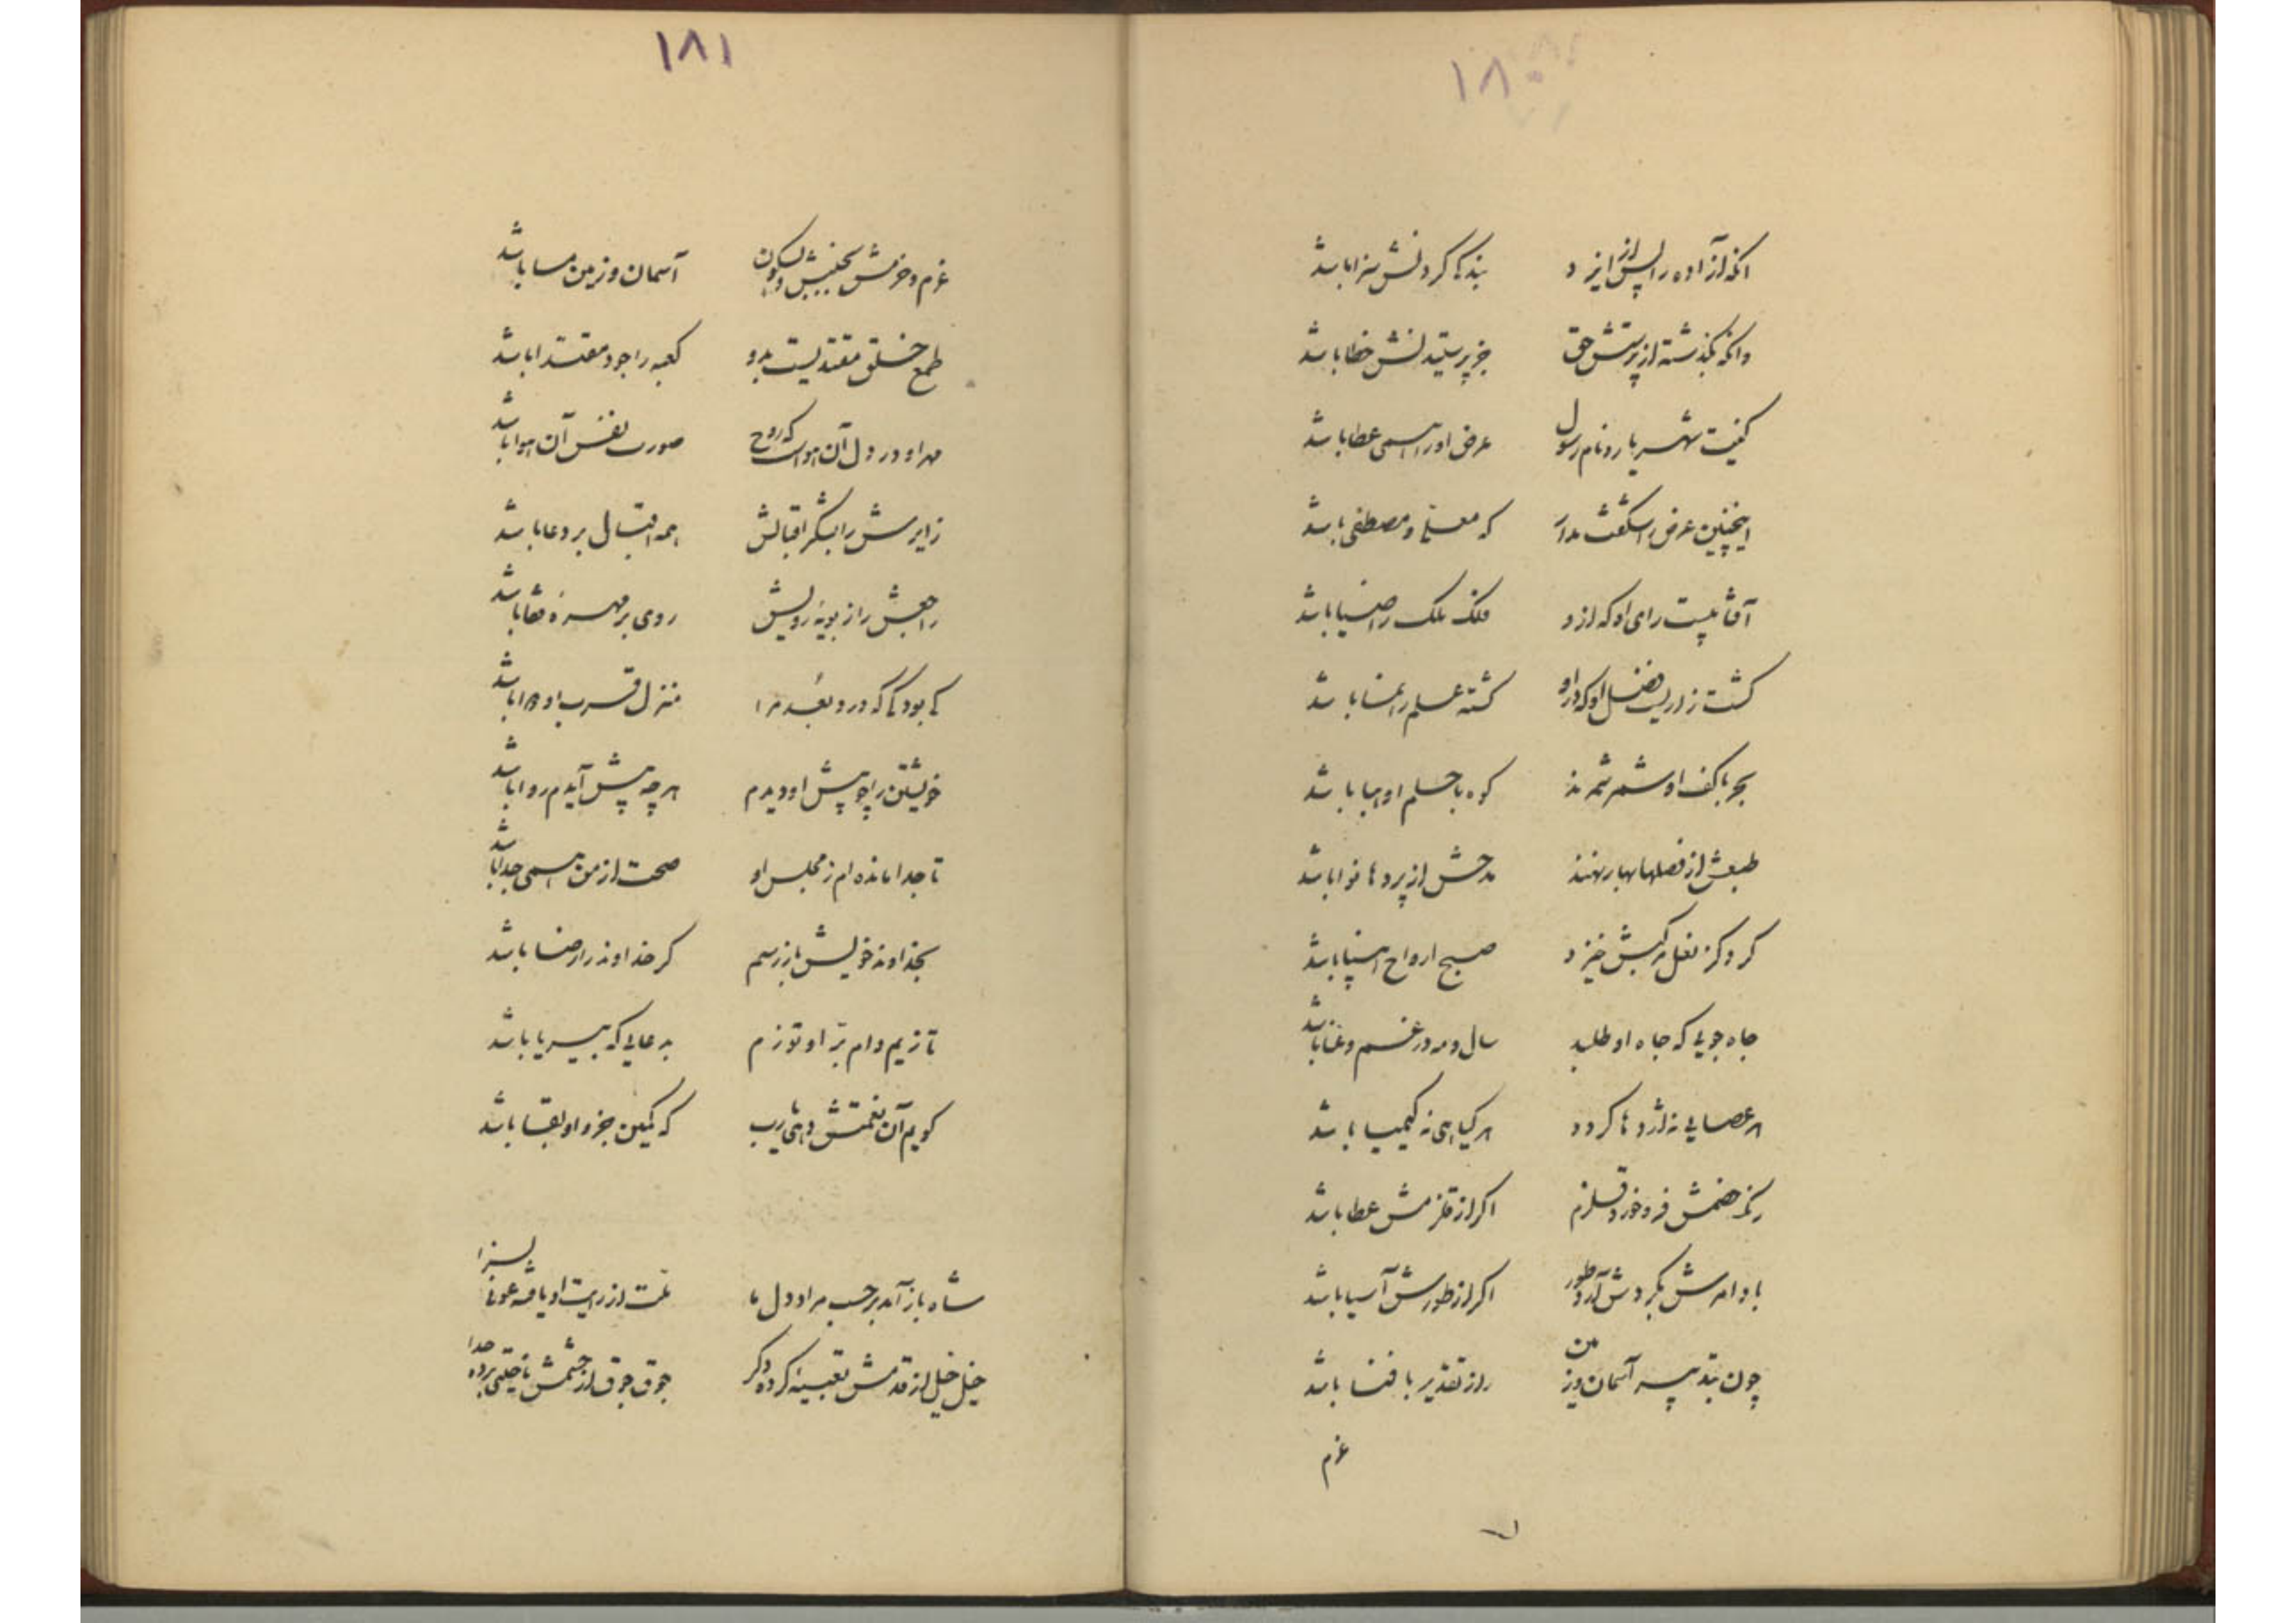 ۱۸۰
آنکه آزاده را پس از ایزد بندگی کردنش سزا باشد
وانکه بگذشته از پرستش حق جز پرستیدنش خطا باشد
کنیت شهریار و نام رسول عرض او را همی عطا باشد
اینچنین عرض را شگفت مدار که معلا و مصطفی باشد
آفتابیست رای او که ازو فلک ملک را ضیا باشد
کشت زاریست فضل او که درو کشته علم را نما باشد
بحر با کف او شمر شمرند کوه با حلم او هبا باشد
طبعش از فصلها بهار نهند مدحش از پردها نوا باشد
گرد کز نعل مرکبش خیزد صبح ارواح اسپیا باشد
جاه جویی که جاه او طلبد سال و مه در غم و عنا باشد
هر عصایی نه اژدها گردد هر گیاهی نه کیمیا باشد
ریگ خصمش فرو خورد قلزم اگر از قلزمش عطا باشد
باد امرش بگردش آرد طور اگر از طورش آسیا باشد
چون بتدبیر آسمان و زمین راز تقدیر با فنا باشد
عزم
۱۸۱
عزم و حزمش بجنبش و بسکون آسمان و زمین مسا باشد
طمع خلق مقتدیست بدو کعبه را جود مقتدا باشد
مهر او در دل آن هواست که روح صورت نفس آن هوا باشد
زایرش را بشکر اقبالش همه اقبال بر دعا باشد
راجعش را ز بویه رویش روی بر مهره قفا باشد
کی بود کی که درد بعد مرا منزل قرب او دوا باشد
خویشتن را چو پیش او دیدم هر چه پیش آیدم روا باشد
تا جدا مانده ام ز مجلس او صحت از من همی جدا باشد
بخداوند خویش باز رسم گر خداوند را رضا باشد
تا زیم وام بر او توزم بدعایی که بی ریا باشد
گویم آن نعمتش دهی یارب که کمین جزو او بقا باشد
شاه باز آمد بر حسب مراد دل ما ملت از رایت او یافته عونی بسزا
خیل خیل از قدمش تعبیه کرده دگر جوق جوق از حشمش تاختنی برده جدا